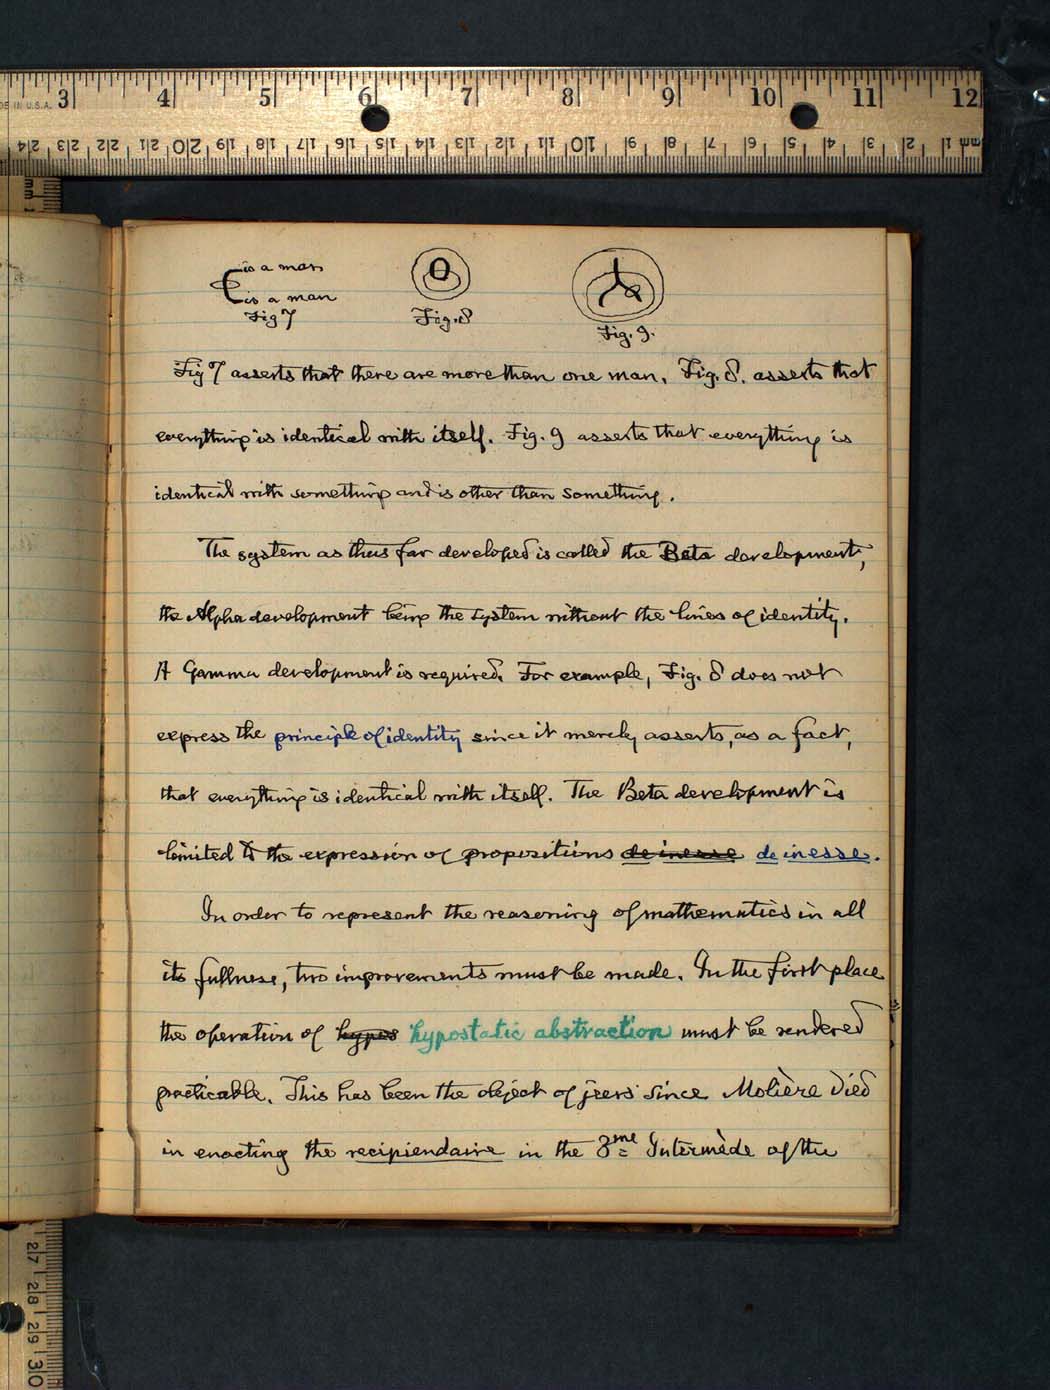 3 4 5 6 7 8 9 10 11 12
MADE IN U.S.A.
24 23 22 21 20 19 18 17 16 15 14 13 12 11 10 9 8 7 6 5 4 3 2 1 mm
mm 1
is a man
is a man
Fig 7
Fig. 8
Fig. 9.
Fig 7 asserts that there are more than one man. Fig. 8. asserts that
everything is identical with itself. Fig. 9 asserts that everything is
identical with something and is other than something.
The system as thus far developed is called the Beta development,
the Alpha development being the system without the lines of identity.
A Gamma development is required. For example, Fig. 8 does not
express the principle of identity since it merely asserts, as a fact,
that everything is identical with itself. The Beta development is
limited to the expression of propositions de inesse de inesse.
In order to represent the reasoning of mathematics in all
its fullness, two improvements must be made. In the first place
the operation of hypos hypostatic abstraction must be rendered
practicable. This has been the object of jeers since Molière died
in enacting the recipiendaire in the 3me Intermède of the
27 28 29 30